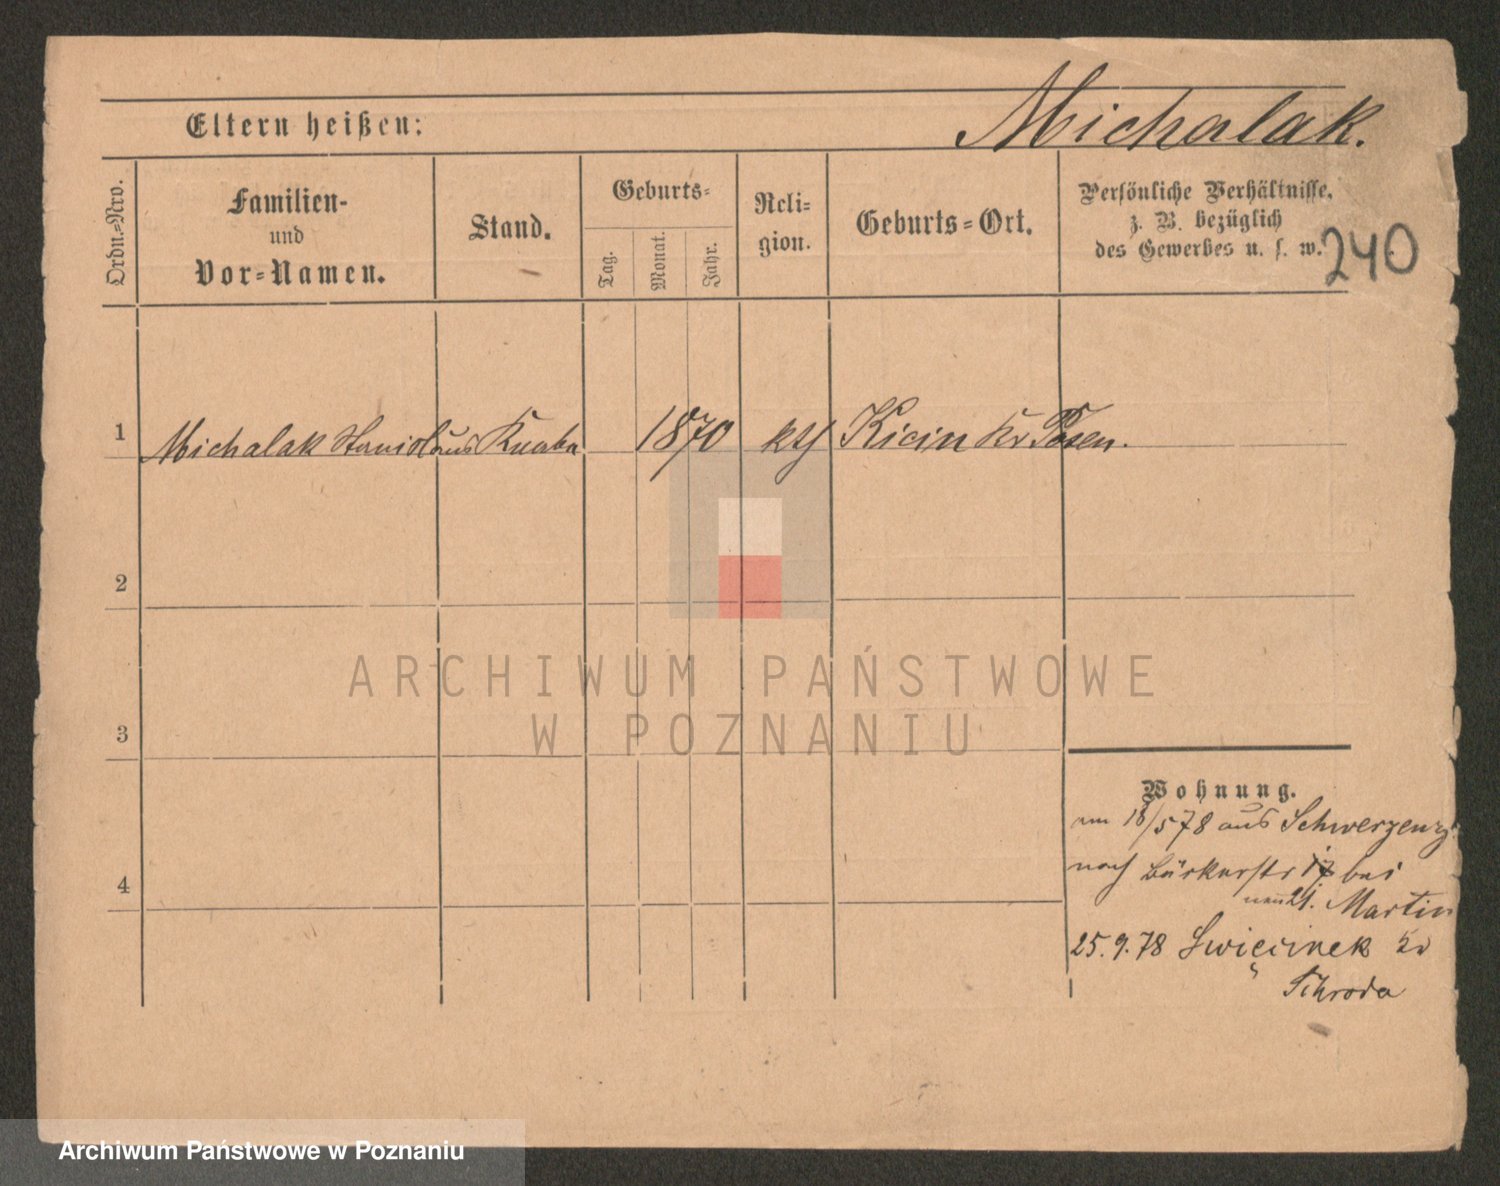 Michalak.
Eltern heißen:
Ordn.-Nro.
Familien-
und
Vor-Namen.
Stand.
Geburts-
Tag.
Monat.
Jahr.
Reli-
gion.
Geburts-Ort.
Persönliche Verhältnisse,
z. B. bezüglich
des Gewerbes u. s. w.
240
1 Michalak Stanislaus Knabe 1870 kth Kicin Kr Posen.
2
ARCHIWUM PAŃSTWOWE
W POZNANIU
3
Wohnung.
am 18/5 78 aus Schwersenz
nach Bäckerstr 17 bei
21. Martin
4
25.9.78 Swięcinek Kr
Schroda
Archiwum Państwowe w Poznaniu